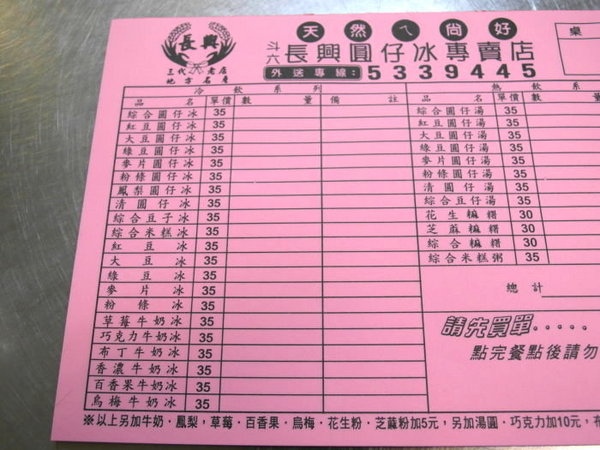 長興
三代老店
地方名產
天然ㄟ尚好
斗六 長興圓仔冰專賣店
外送專線：5339445
桌
冷飲系列
品名 單價 數量 備註
綜合圓仔冰 35
紅豆圓仔冰 35
大豆圓仔冰 35
綠豆圓仔冰 35
麥片圓仔冰 35
粉條圓仔冰 35
鳳梨圓仔冰 35
清圓仔冰 35
綜合豆子冰 35
綜合米糕冰 35
紅豆冰 35
大豆冰 35
綠豆冰 35
麥片冰 35
粉條冰 35
草莓牛奶冰 35
巧克力牛奶冰 35
布丁牛奶冰 35
香濃牛奶冰 35
百香果牛奶冰 35
烏梅牛奶冰 35
熱飲系
品名 單價 數
綜合圓仔湯 35
紅豆圓仔湯 35
大豆圓仔湯 35
綠豆圓仔湯 35
麥片圓仔湯 35
粉條圓仔湯 35
清圓仔湯 35
綜合豆仔湯 35
花生麻糬 30
芝麻麻糬 30
綜合麻糬 30
綜合米糕粥 35
總計
請先買單.....
點完餐點後請勿
※以上另加牛奶．鳳梨，草莓．百香果．烏梅．花生粉．芝蔴粉加5元，另加湯圓．巧克力加10元，布